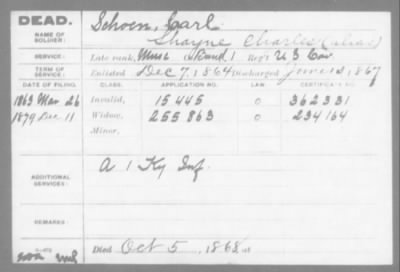 DEAD.
NAME OF SOLDIER:
Schoen, Carl
Shayne Charles (alias)
SERVICE:
Late rank, Musc Band, Reg't U S Cav
TERM OF SERVICE:
Enlisted Dec 7, 1864 Discharged June 12, 1867
DATE OF FILING. CLASS. APPLICATION NO. LAW. CERTIFICATE NO.
1863 Mar 26 Invalid, 15445 o 362331
1879 Dec 11 Widow, 255863 o 234164
Minor,
ADDITIONAL SERVICES:
A 1 Ky Inf.
REMARKS:
Died Oct 5, 1868, at